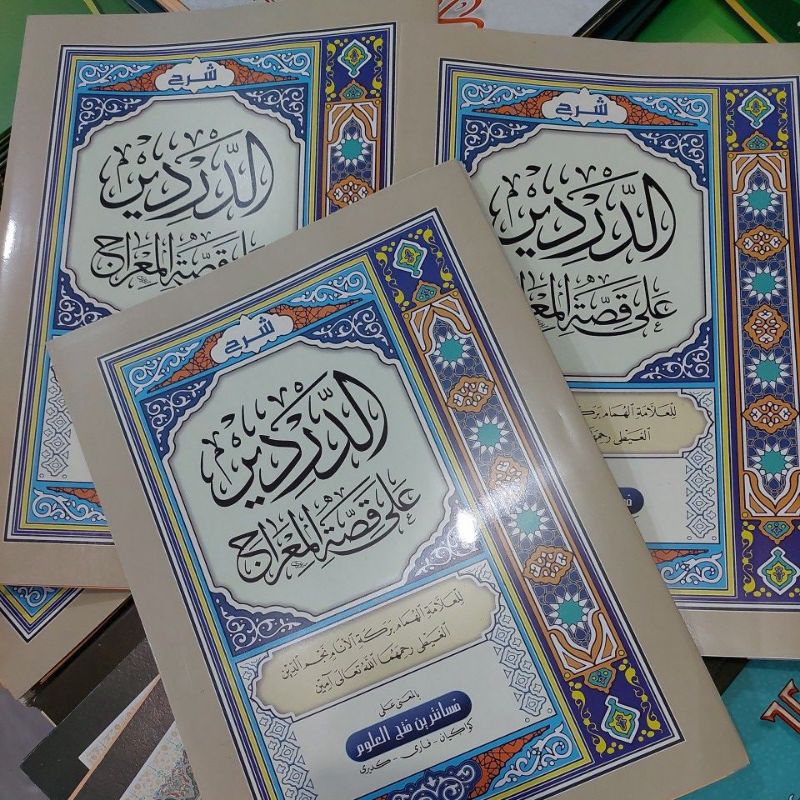 شرح
الدَّرْدِيْر
قِصَّةِ الْمِعْرَاج
شرح
الدَّرْدِيْر
عَلَى قِصَّةِ
لِلْعَلَّامَةِ الْهُمَامِ
الْغَيْطِى
شرح
الدَّرْدِيْر
عَلَى قِصَّةِ الْمِعْرَاج
لِلْعَلَّامَةِ الْهُمَامِ بَرَكَةِ الْأَنَامِ نَجْمِ الدِّيْنِ
الْغَيْطِى رَحِمَهُمَا اللهُ تَعَالَى آمِيْن
بالمعنى على
فسانترين فتح العلوم
كواكيان - فارى - كديرى